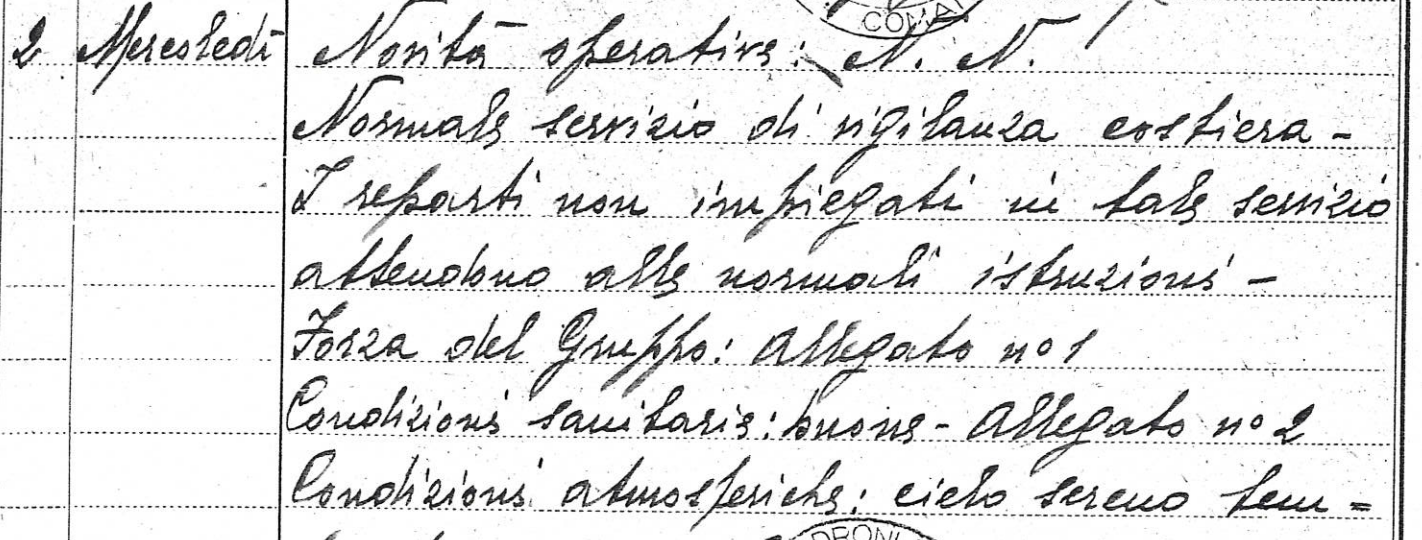 COMA
2 Mercoledì Novità operative: N. N.
Normale servizio di vigilanza costiera -
I reparti non impiegati in tale servizio
attendono alle normali istruzioni -
Forza del Gruppo: Allegato nº 1
Condizioni sanitarie: buone - Allegato nº 2
Condizioni atmosferiche: cielo sereno tem=
DRONI